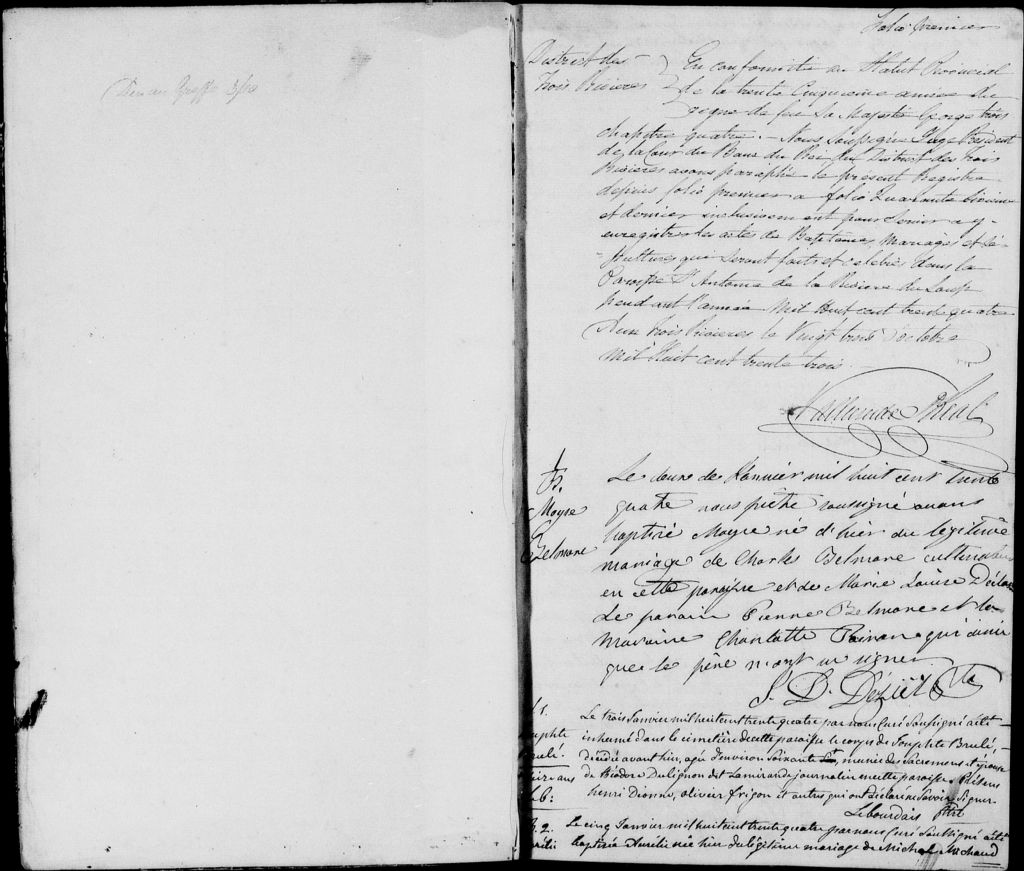 Folio Premier
District des
Trois Rivieres
En conformité au Statut Provincial
de la trente Cinquieme année du
regne de feu Sa Majesté George trois
chapitre quatre. - Nous Soussigné Juge Resident
de la Cour du Banc du Roi du District des trois
Rivieres avons paraphé le present Registre
depuis folio premier a folio Quarante
et dernier inclusivement pour Servir a y
enregistrer les actes de Baptemes, Mariages et Sé-
pultures qui Seront faits et celebrés dans la
Paroisse St Antoine de la Riviere du Loup
pendant l'année Mil Huit cent trente quatre
Aux trois Rivieres le Vingt trois octobre
Mil Huit cent trente trois.
B.
Moyse
Belmare
Le deux de Janvier mil huit cent trente
quatre nous prêtre soussigné avons
baptisé Moyse né d'hier du légitime
mariage de Charles Belmare cultivateur
en cette paroisse et de Marie Louise
Le parain Pierre Belmare et la
maraine Charlotte qui ainsi
que le père n'ont su signer.
S. 1.
Josephte
Brulé.
Le trois Janvier mil huit cent trente quatre par nous Curé Soussigné a été
inhumé dans le cimetière de cette paroisse le corps de Josephte Brulé,
décédée avant hier, agée d'environ Soixante ans, munie des Sacremens et épouse
de Théodore Dulignon dit Lamirande journalier en cette paroisse. Présens
henri Dionne, olivier frigon et autres qui ont déclaré ne Savoir Signer.
Lebourdais Ptre
B. 2.
Le cinq Janvier mil huit cent trente quatre par nous Curé Soussigné a été
baptisée Aurélie née hier du légitime mariage de Michel Michaud